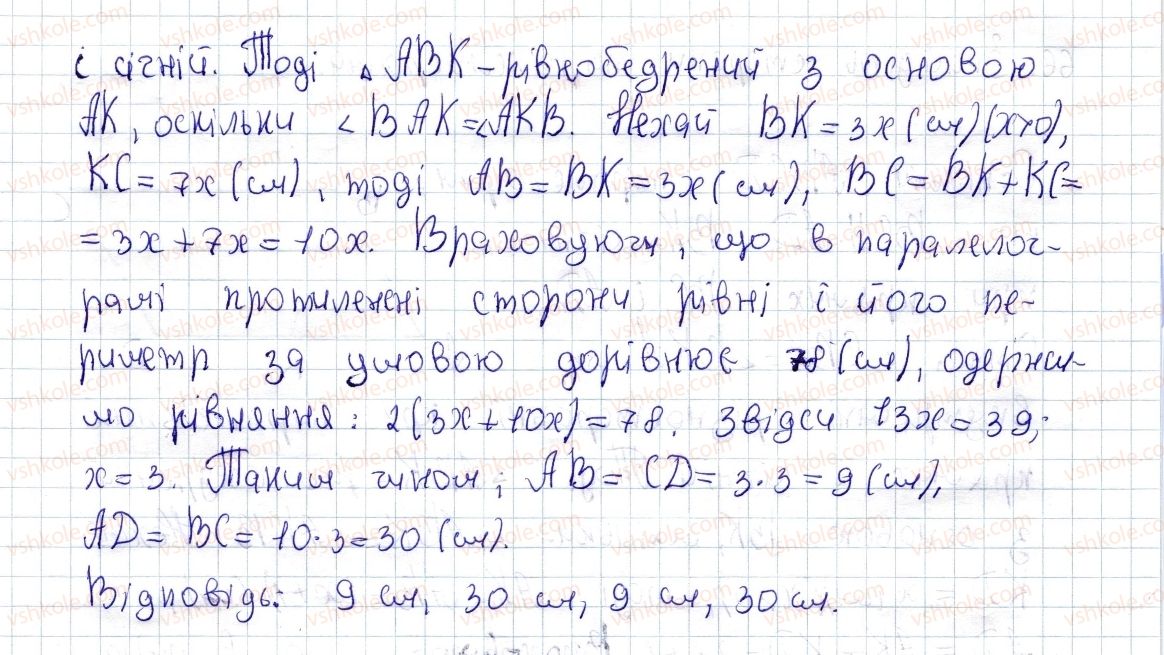 і січній. Тоді △ ABK – рівнобедрений з основою
AK, оскільки ∠BAK=∠AKB. Нехай BK = 3x (см) (x>0),
KC = 7x (см), тоді AB = BK = 3x (см), BC = BK + KC =
= 3x + 7x = 10x. Враховуючи, що в паралелог-
рамі протилежні сторони рівні і його пе-
риметр за умовою дорівнює 78 (см), одержи-
мо рівняння: 2(3x + 10x) = 78. Звідси 13x = 39;
x = 3. Таким чином, AB = CD = 3·3 = 9 (см),
AD = BC = 10·3 = 30 (см).
Відповідь: 9 см, 30 см, 9 см, 30 см.